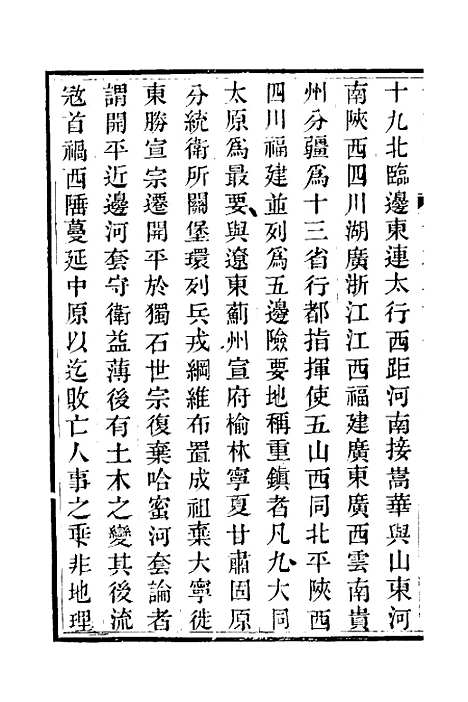 十九北臨邊東連太行西距河南接嵩華與山東河
南陝西四川湖廣浙江江西福建廣東廣西雲南貴
州分疆爲十三省行都指揮使五山西同北平陝西
四川福建並列爲五邊險要地稱重鎮者凡九大同
太原爲最要與遼東薊州宣府榆林寧夏甘肅固原
分統衛所關堡環列兵戎綱維布置成祖棄大寧徙
東勝宣宗遷開平於獨石世宗復棄哈蜜河套論者
謂開平近邊河套守衛益薄後有土木之變其後流
寇首禍西陲蔓延中原以迄敗亡人事之乖非地理